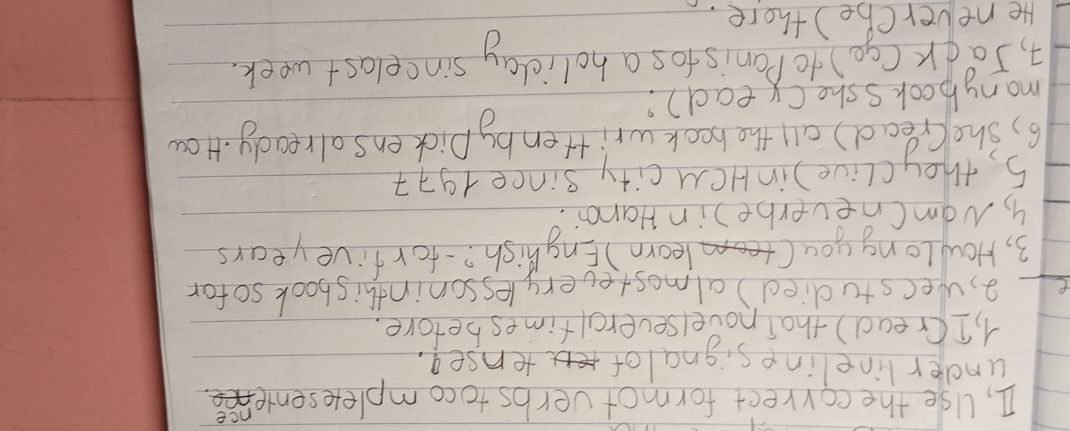 II, Use the correct form of verbs to complete sentence
underline line signal of tense!.
1, I (read) that novel several times before.
2, We (studied) almost every lesson in this book so far
3, How Long you (learn) Enghish? - for five years
4, Nam (never be) in Hanoi.
5, they (live) in HCM city since 1977
6, She (read) all the book written by Dickens already. How
many books she (read)?
7, Jack (go) to Paris for a holiday since last week.
He never (be) there.